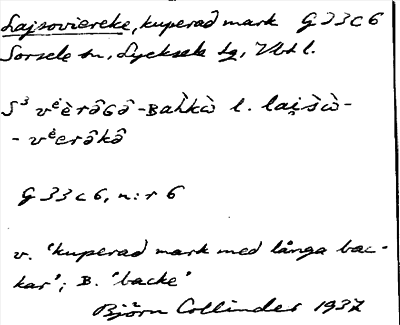 Lajsoviereke, kuperad mark G 33 c 6
Sorsele sn, Lycksele lg, Vbtl.
S³ vė̀èrə̂Gə̂-Baĺkὼ l. lai̯šὼ-
- vėerə̂kə̂
G 33 c 6, n:r 6
v. 'kuperad mark med långa bac-
kar'; B. 'backe'
Björn Collinder 1937